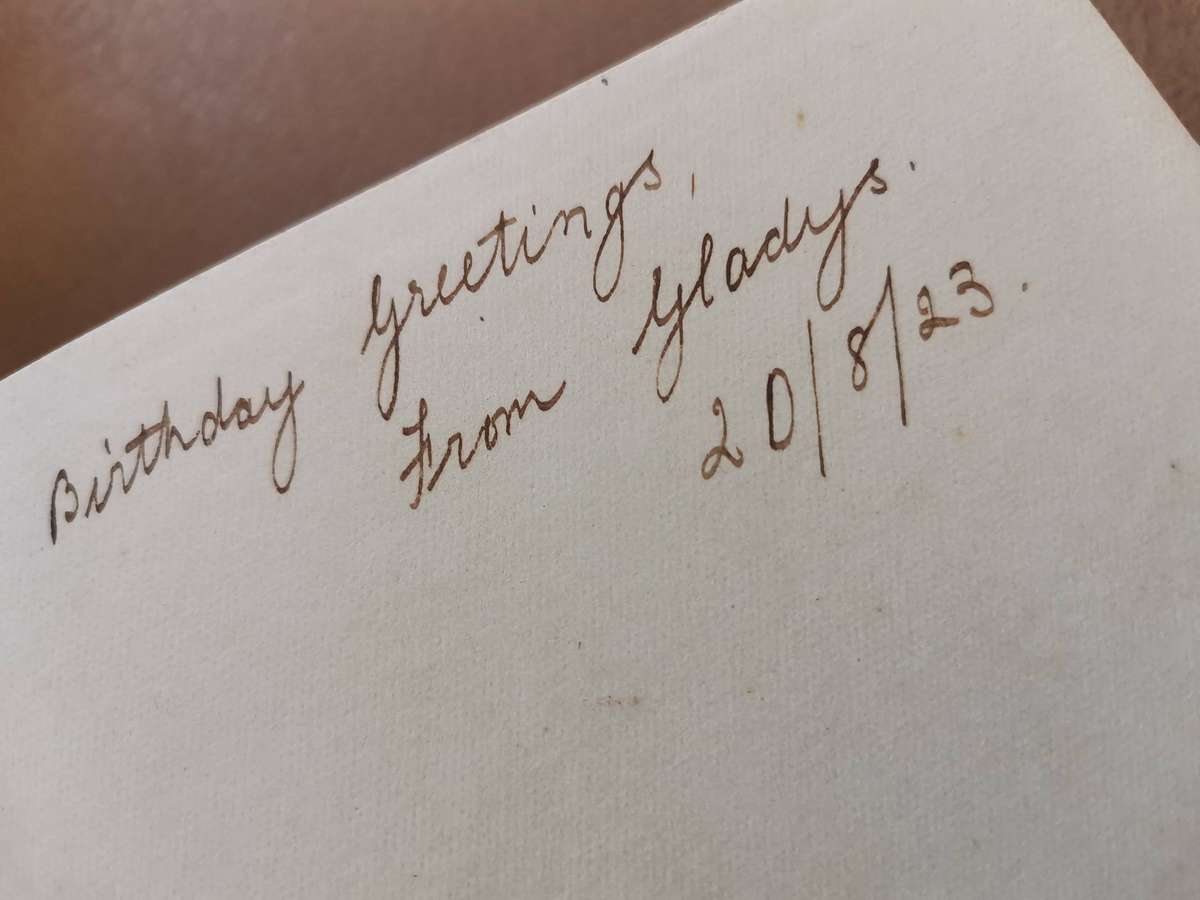 Birthday Greetings,
From Gladys.
20/8/23.